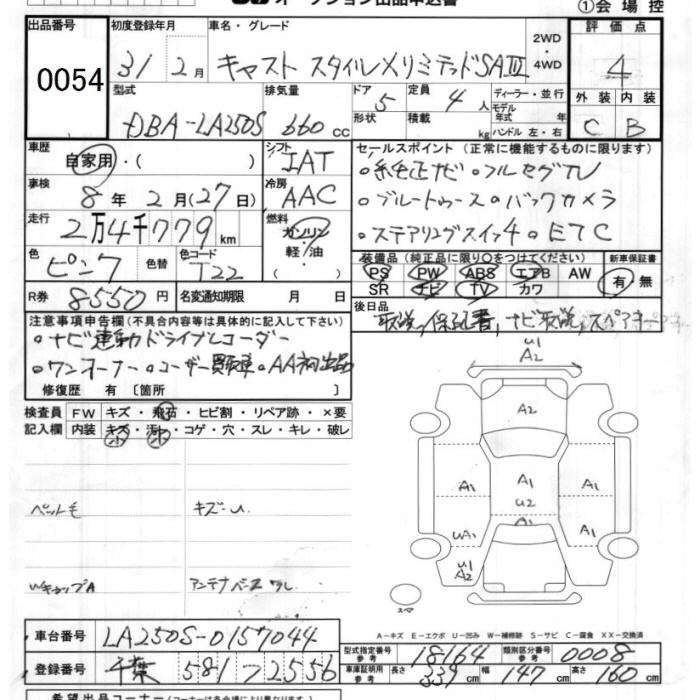 オークション出品申込書
①会場控
出品番号 初度登録年月 車名・グレード 評価点
0054 31 2月 キャスト スタイルXリミテッドSAⅢ 2WD・4WD 4
型式 排気量 ドア 定員 ディーラー・並行 外装 内装
DBA-LA250S 660cc 5 4人 モデル年式 年式 C B
形状 積載 kg ハンドル 左・右
車歴 シフト セールスポイント (正常に機能するものに限ります)
自家用・( ) IAT 。純正ナビ 。フルセグTV
車検 冷房
8年2月(27日) AAC 。ブルートゥース 。バックカメラ
走行 燃料
2万4千779km ガソリン・軽油・( ) 。ステアリングスイッチ 。ETC
色 色替 色コード 装備品(純正品に限り○をつけてください) 新車保証書
ピンク T22 PS PW ABS エアB AW 有・無
SR ナビ TV カワ
R券 8550円 名変通知期限 月 日 後日品
取説、保証書、ナビ取説、スペアキー
注意事項申告欄(不具合内容等は具体的に記入して下さい)
。ナビ連動ドライブレコーダー
。ワンオーナー 。ユーザー買取車 。AA初出品
修復歴 有 〔箇所 〕
検査員 FW キズ・飛石・ヒビ割・リペア跡・×要
記入欄 内装 キズ・汚れ・コゲ・穴・スレ・キレ・破レ
小 小
U1
A2
A2
A1 A1 A1
U2
UA1 A1 A1
U1
A2
ペット毛 キズ〜U
WキャップA アンテナベースワレ
スペア
A−キズ E−エクボ U−凹み W−補修跡 S−サビ C−腐食 XX−交換済
車台番号 LA250S-0157044
型式指定番号 参考 18164 類別区分番号 参考 0008
登録番号 千葉 581 つ 2556
車庫証明用 参考 長さ 339cm 幅 147cm 高さ 160cm
希望出品コーナー